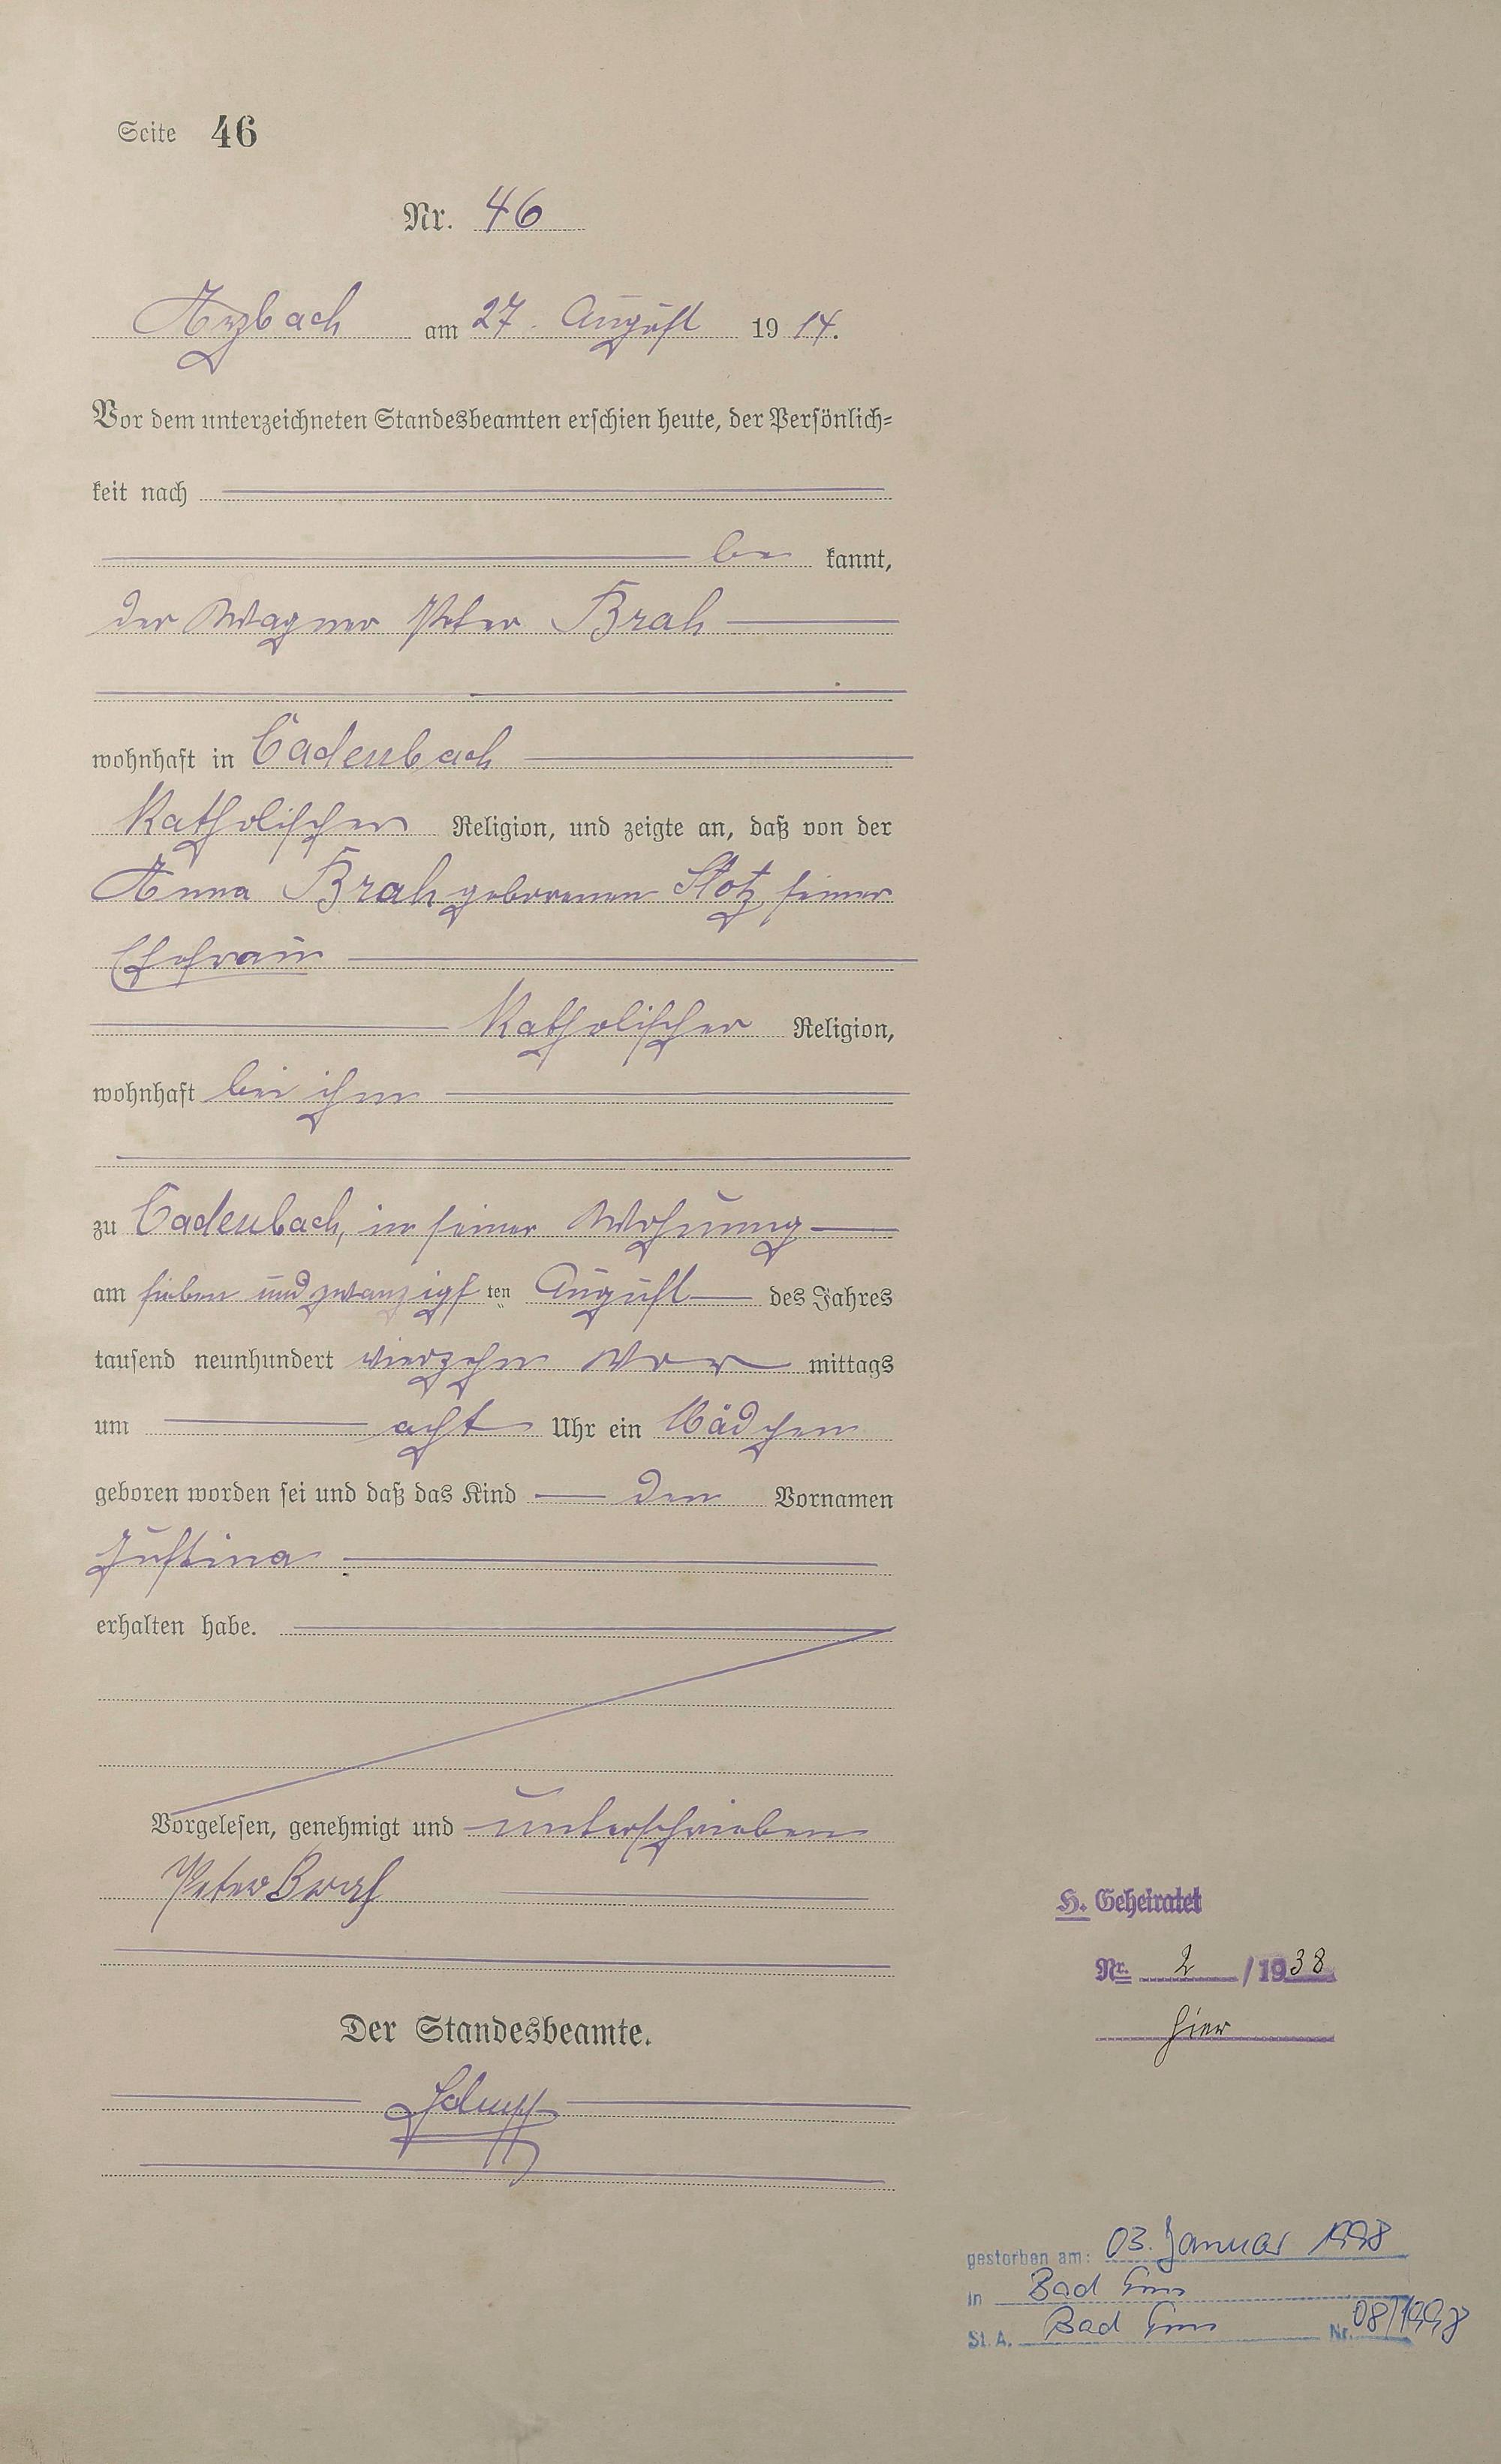 Seite 46
Nr. 46
Arzbach am 27. August 1914.
Vor dem unterzeichneten Standesbeamten erschien heute, der Persönlich=
keit nach
be kannt,
der Wagner Peter Brah
wohnhaft in Cadenbach
katholischer Religion, und zeigte an, daß von der
Anna Brah geborenen Stotz, seiner
Ehefrau
katholischer Religion,
wohnhaft bei ihm
zu Cadenbach, in seiner Wohnung
am sieben und zwanzigsten August des Jahres
tausend neunhundert vierzehn Vor mittags
um acht Uhr ein Mädchen
geboren worden sei und daß das Kind den Vornamen
Justina
erhalten habe.
Vorgelesen, genehmigt und unterschrieben
Peter Brah
Der Standesbeamte.
H. Geheiratet
Nr. 2 / 1938
hier
gestorben am: 03. Januar 1998
in Bad Ems
St. A. Bad Ems Nr. 08/1998